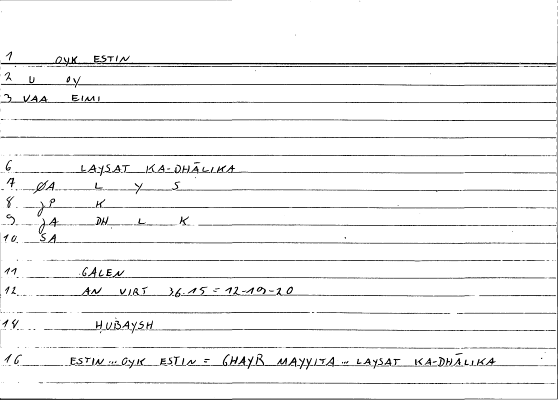 1 OYK ESTIN
2 U OY
3 VAA EIMI
6 LAYSAT KA-DHĀLIKA
7. ØA L Y S
8. jP K
9. jA DH L K
10. SA
11 GALEN
12 AN VIRT 36.15 = 12-19-20
14 ḤUBAYSH
16 ESTIN... OYK ESTIN = GHAYR MAYYITA... LAYSAT KA-DHĀLIKA